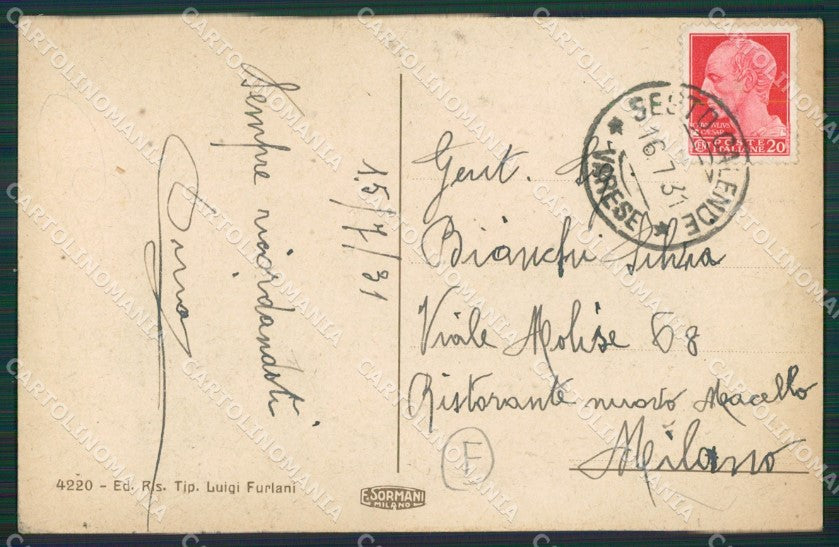 Sempre ricordandoti
Pina
15/7/31
4220 - Ed. Ris. Tip. Luigi Furlani
E. SORMANI
MILANO
SESTO CALENDE
16.7.31
VARESE
POSTE
ITALIANE 20
Gent.
Bianchi Silvia
Viale Molise 68
Ristorante nuovo Macello
Milano
F
CARTOLINOMANIA